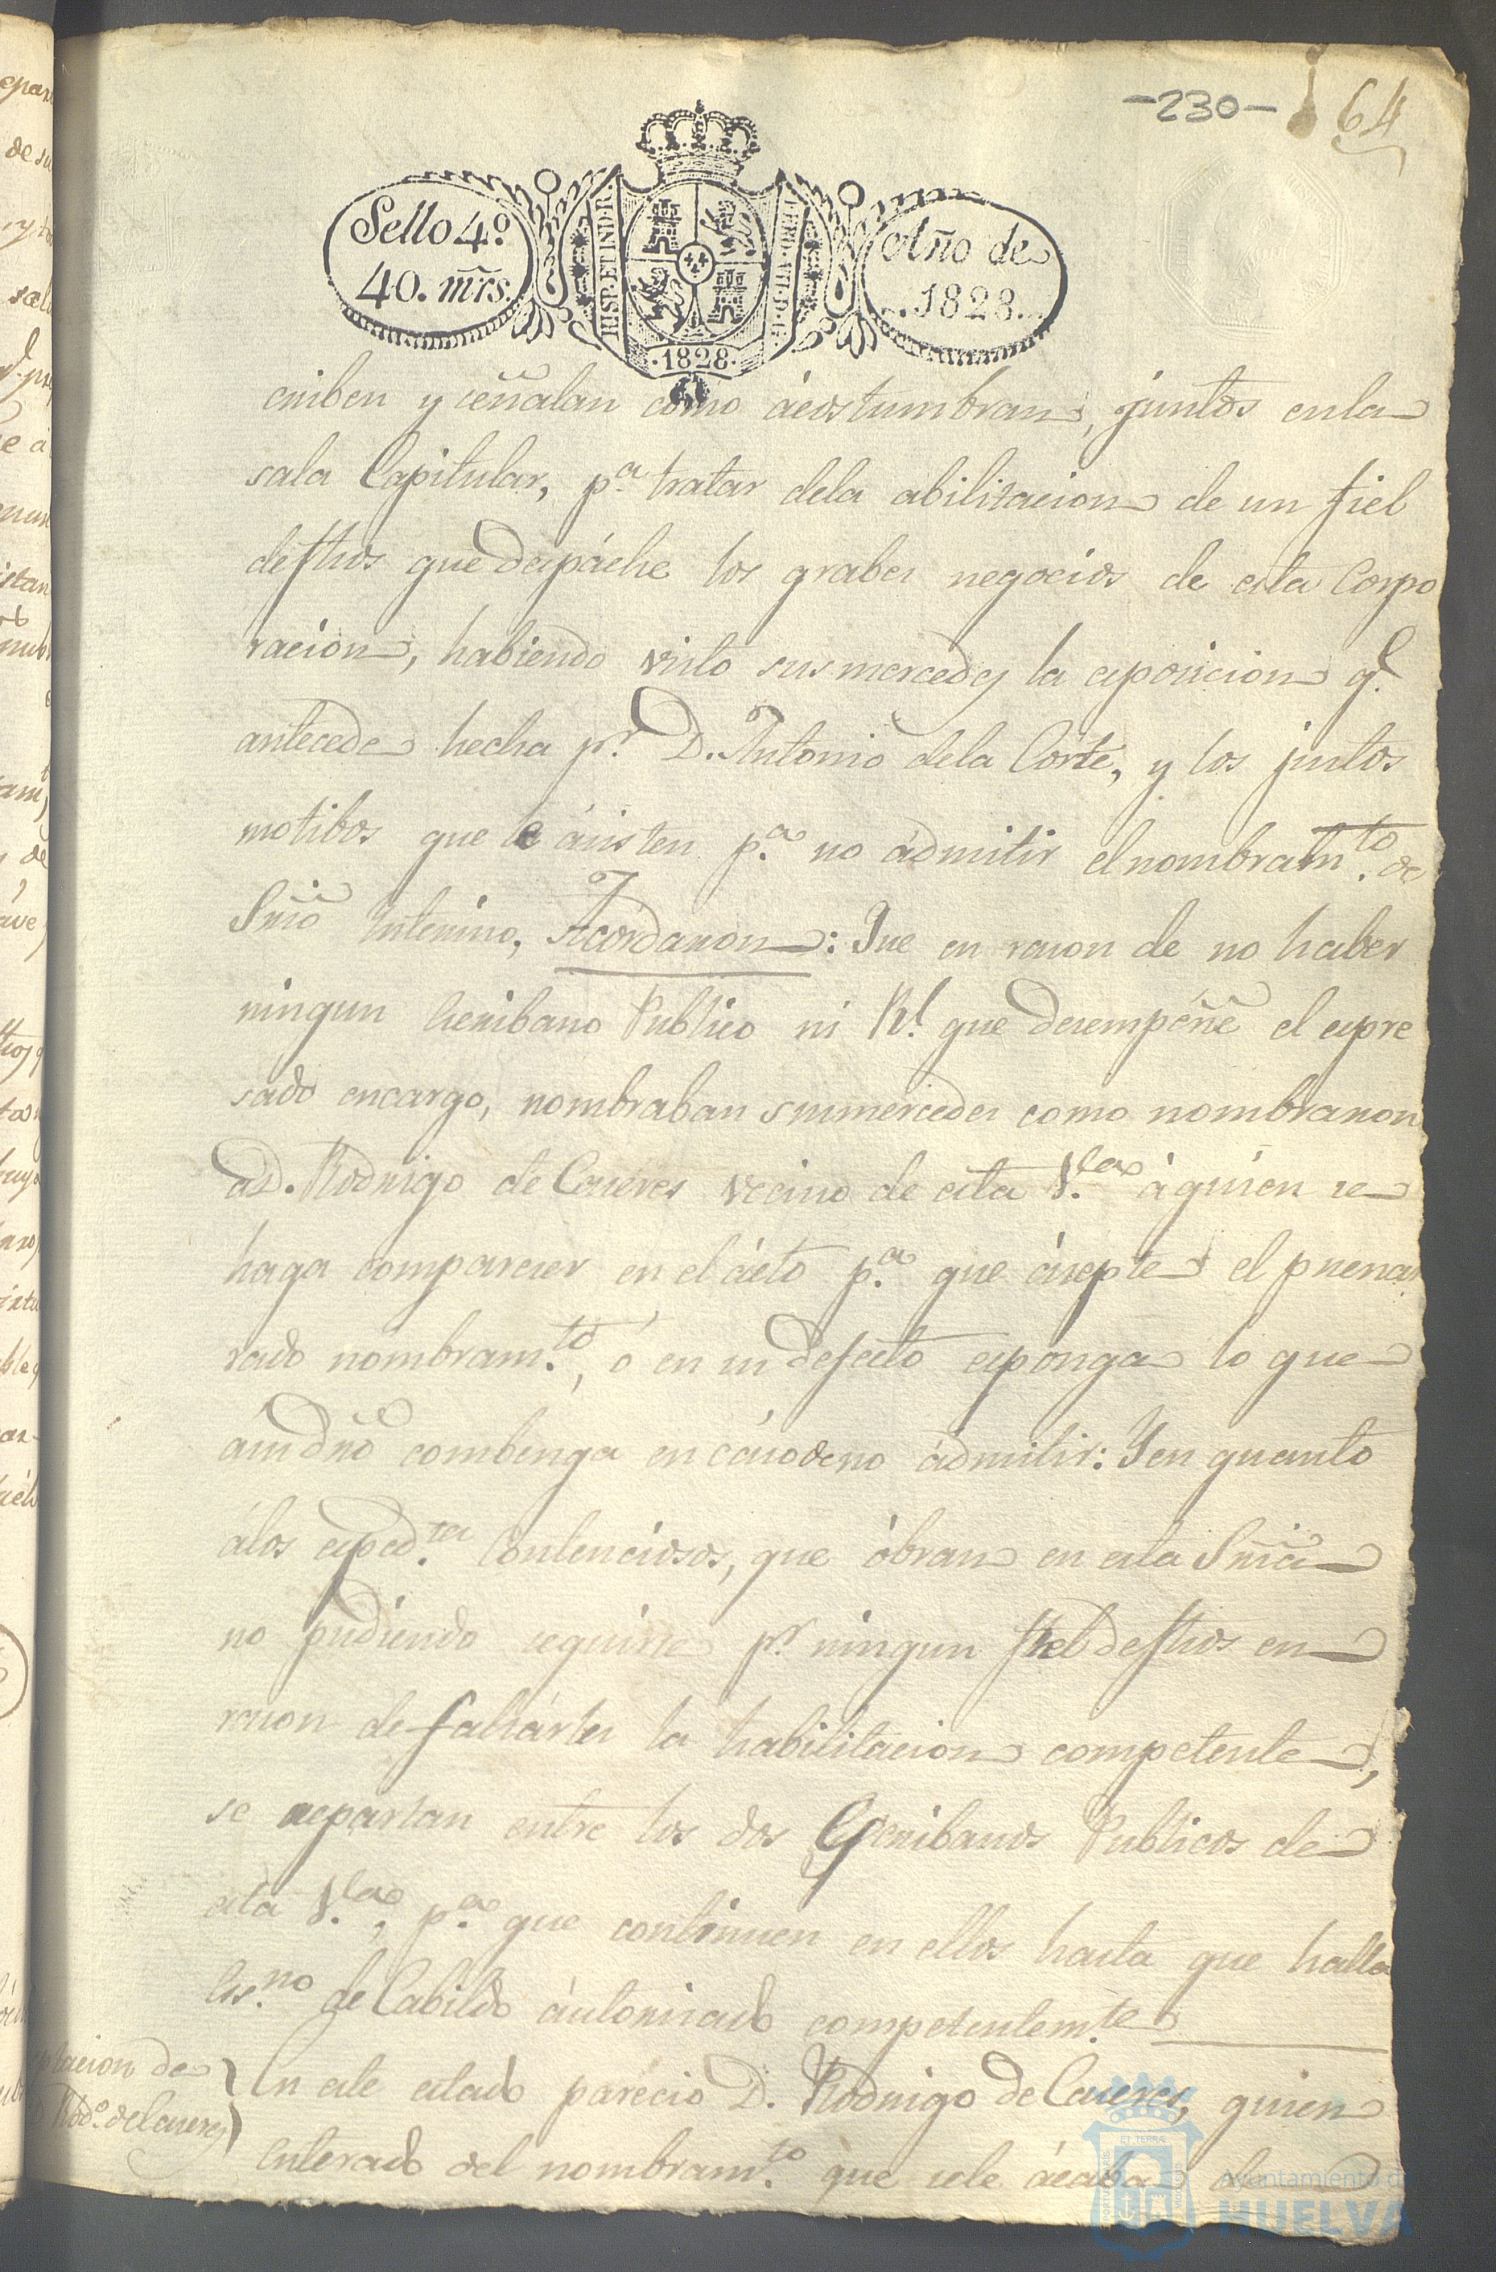 -230-
64
Sello 4.º
40. mrs.
HISP. ET IND. R.
1828
Año de
1828
criben y señalan como ácostumbran, juntos enla
sala Capitular, p.ª tratar dela abilitacion de un fiel
defhos que despáche los grabes negocios de esta Corpo
racion, habiendo visto susmercedes la exposicion q.e
antecede hecha p.r D. Antonio dela Corte, y los justos
motibos que le ásisten p.ª no ádmitir elnombram.to de
Srio Interino, Acordaron: Que en rason de no haber
ningun Escribano Publico ni Rl. que desempeñe el expre
sado encargo, nombraban susmercedes como nombraron
áD. Rodrigo de Caseres vecino de esta V.la á quien se
haga compareser en el ácto p.ª que ásepte el puenar
rado nombram.to, ó en su defecto exponga lo que
ásu dro combenga en cáso de no ádmitir: Y en quanto
álos exped.tes Contenciosos, que óbran en esta Sria
no pudiendo seguirse p.r ningun fiel defhos en
rason de faltárles la habilitacion competente,
se repartan entre los dos Escribanos Publicos de
esta V.la, p.ª que continuen en ellos hasta que halla
Es.no de Cabildo áutorisado competentem.te
tacion de
Rod.º de Caseres
En este estado parecio D. Rodrigo de Caseres, quien
enterado del nombram.to que sele ácaba de
Ayuntamiento de
HUELVA